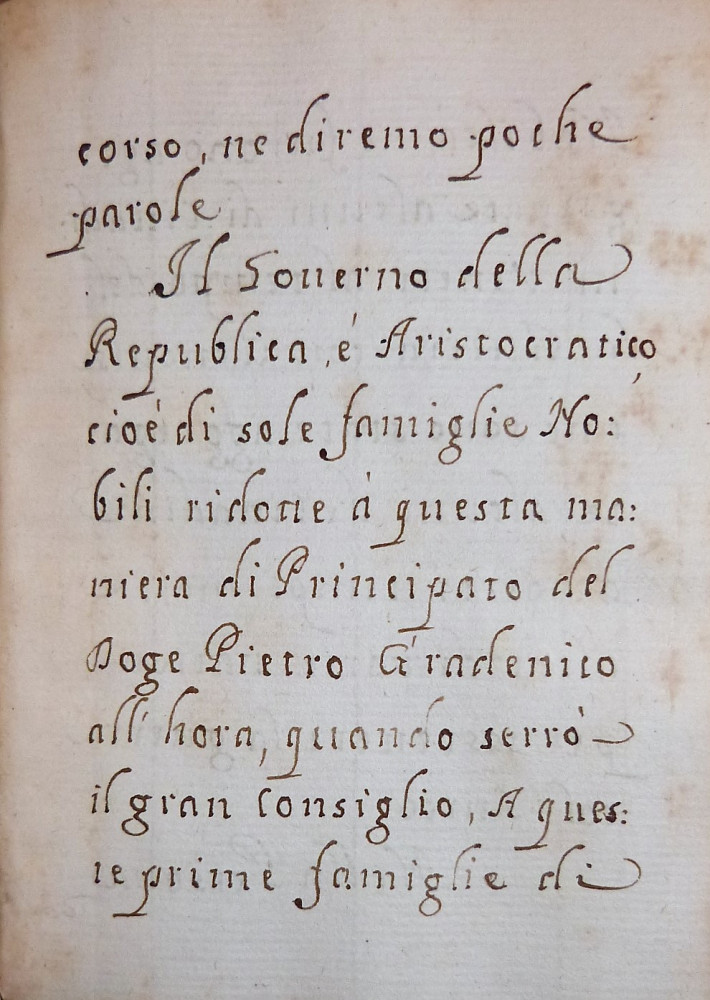 corso, ne diremo poche
parole
Il Gouerno della
Republica, é Aristocratico,
cioé di sole famiglie No:
bili ridotte à questa ma:
niera di Principato del
Doge Pietro Gradenico
all'hora, quando serrò
il gran Consiglio, A ques:
te prime famiglie di